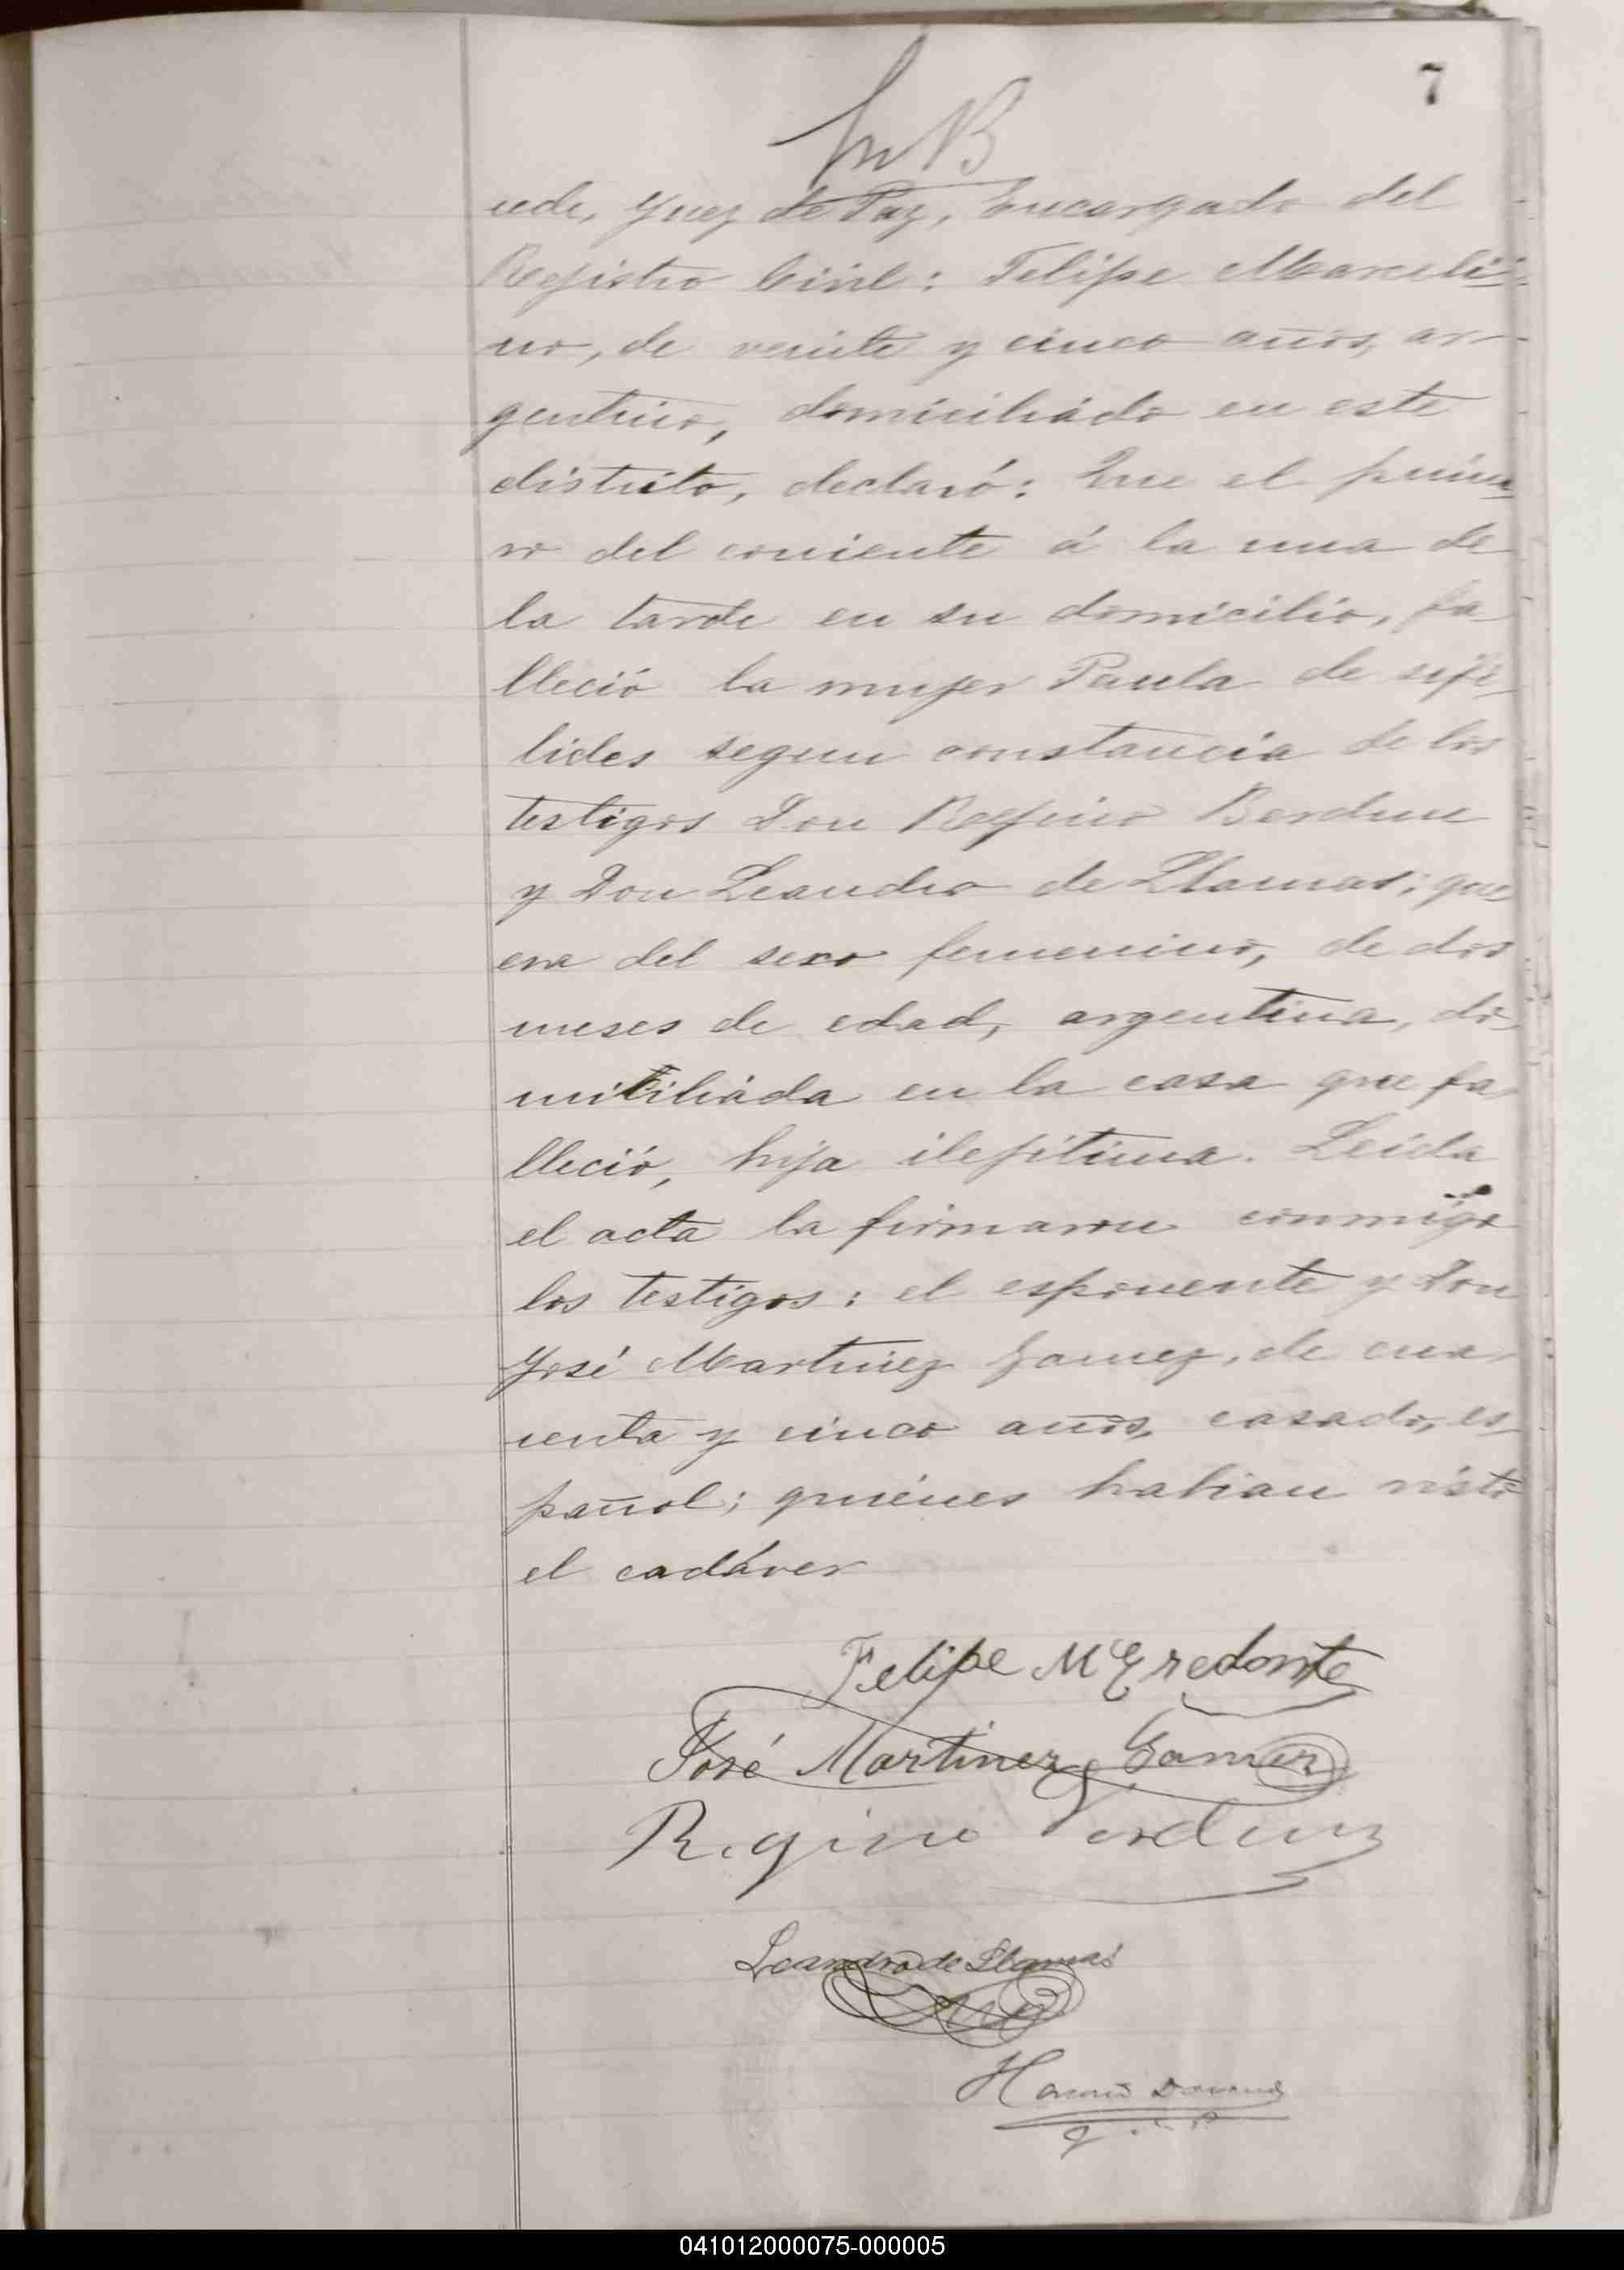 7
ede, Juez de Paz, Encargado del
Registro Civil: Felipe Marceli-
no, de veinte y cinco años, ar-
gentino, domiciliado en este
distrito, declaró: Que el prime
ro del corriente á la una de
la tarde en su domicilio, fa-
lleció la mujer Paula de sifi-
lides segun constancia de los
testigos Don Regino Berdun
y Don Leandro de Llamas; que
era del sexo femenino, de dos
meses de edad, argentina, do-
miciliada en la casa que fa-
lleció, hija ilejitima. Leida
el acta la firmaron conmigo
los testigos: el esponente y Don
José Martinez Gamez, de cua-
renta y cinco años, casado, es-
pañol; quiénes habian visto
el cadáver
Felipe M Eredonte
José Martinez Gamez
Regino Verdun
Leandro de Llamas
041012000075-000005